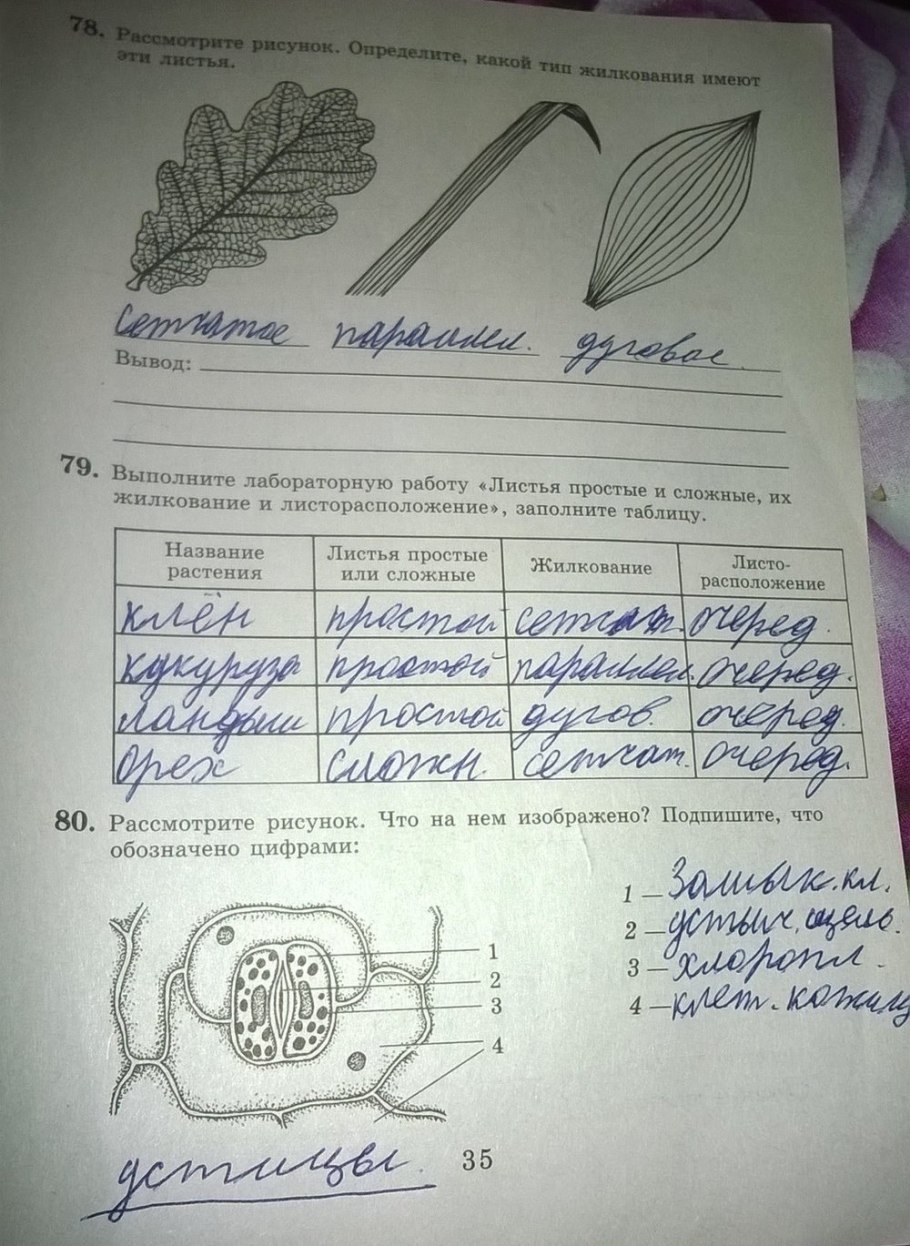 78. Рассмотрите рисунок. Определите, какой тип жилкования имеют
эти листья.
Сетчатое параллел. дуговое
Вывод:
79. Выполните лабораторную работу «Листья простые и сложные, их
жилкование и листорасположение», заполните таблицу.
Название растения Листья простые или сложные Жилкование Листо-расположение
клён простой сетчат. очеред.
кукуруза простой параллел. очеред.
ландыш простой дугов. очеред.
орех сложн. сетчат. очеред.
80. Рассмотрите рисунок. Что на нем изображено? Подпишите, что
обозначено цифрами:
1 — Замык. кл.
2 — устьич. щель.
3 — хлоропл.
4 — клет. кожицы
1
2
3
4
устицы.
35